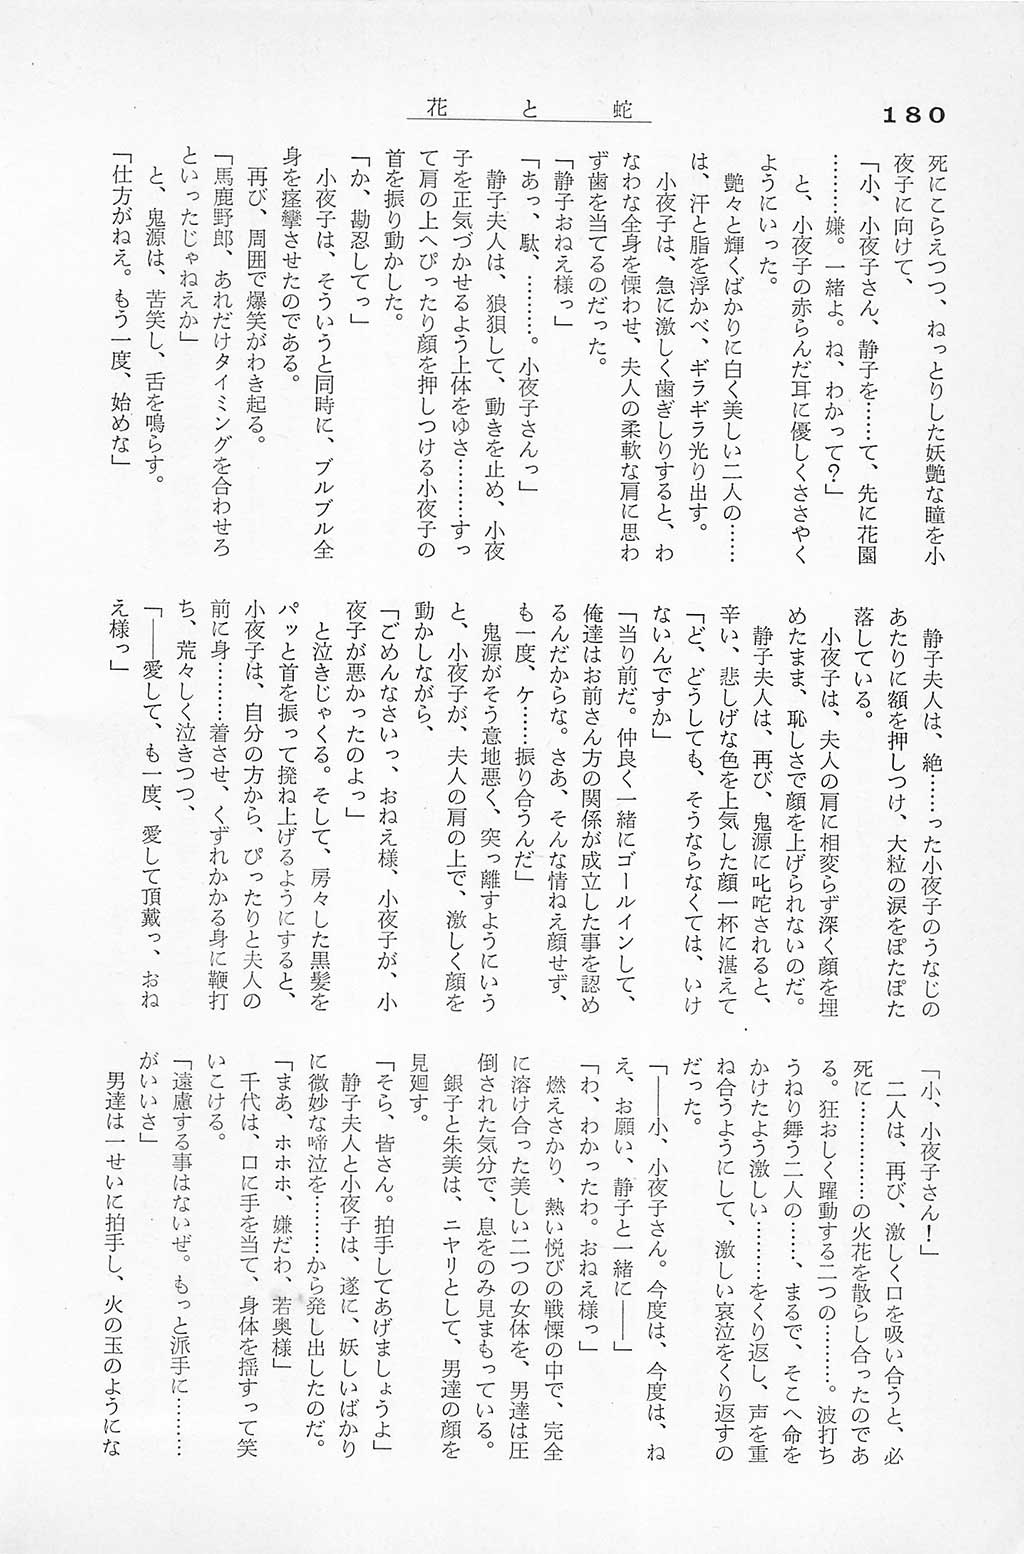 180
花と蛇
死にこらえつつ、ねっとりした妖艶な瞳を小
夜子に向けて、
「小、小夜子さん、静子を……て、先に花園
………嫌。一緒よ。ね、わかって？」
と、小夜子の赤らんだ耳に優しくささやく
ようにいった。
艶々と輝くばかりに白く美しい二人の……
は、汗と脂を浮かべ、ギラギラ光り出す。
小夜子は、急に激しく歯ぎしりすると、わ
なわな全身を慄わせ、夫人の柔軟な肩に思わ
ず歯を当てるのだった。
「静子おねえ様っ」
「あっ、駄、………。小夜子さんっ」
静子夫人は、狼狽して、動きを止め、小夜
子を正気づかせるよう上体をゆさ………すっ
て肩の上へぴったり顔を押しつける小夜子の
首を振り動かした。
「か、勘忍してっ」
小夜子は、そういうと同時に、ブルブル全
身を痙攣させたのである。
再び、周囲で爆笑がわき起る。
「馬鹿野郎、あれだけタイミングを合わせろ
といったじゃねえか」
と、鬼源は、苦笑し、舌を鳴らす。
「仕方がねえ。もう一度、始めな」
静子夫人は、絶……った小夜子のうなじの
あたりに額を押しつけ、大粒の涙をぽたぽた
落している。
小夜子は、夫人の肩に相変らず深く顔を埋
めたまま、恥しさで顔を上げられないのだ。
静子夫人は、再び、鬼源に叱咤されると、
辛い、悲しげな色を上気した顔一杯に湛えて
「ど、どうしても、そうならなくては、いけ
ないんですか」
「当り前だ。仲良く一緒にゴールインして、
俺達はお前さん方の関係が成立した事を認め
るんだからな。さあ、そんな情ねえ顔せず、
も一度、ケ……振り合うんだ」
鬼源がそう意地悪く、突っ離すようにいう
と、小夜子が、夫人の肩の上で、激しく顔を
動かしながら、
「ごめんなさいっ、おねえ様、小夜子が、小
夜子が悪かったのよっ」
と泣きじゃくる。そして、房々した黒髪を
パッと首を振って撥ね上げるようにすると、
小夜子は、自分の方から、ぴったりと夫人の
前に身………着させ、くずれかかる身に鞭打
ち、荒々しく泣きつつ、
「――愛して、も一度、愛して頂戴っ、おね
え様っ」
「小、小夜子さん！」
二人は、再び、激しく口を吸い合うと、必
死に…………の火花を散らし合ったのであ
る。狂おしく躍動する二つの………。波打ち
うねり舞う二人の……、まるで、そこへ命を
かけたよう激しい………をくり返し、声を重
ね合うようにして、激しい哀泣をくり返すの
だった。
「――小、小夜子さん。今度は、今度は、ね
え、お願い、静子と一緒に――」
「わ、わかったわ。おねえ様っ」
燃えさかり、熱い悦びの戦慄の中で、完全
に溶け合った美しい二つの女体を、男達は圧
倒された気分で、息をのみ見まもっている。
銀子と朱美は、ニヤリとして、男達の顔を
見廻す。
「そら、皆さん。拍手してあげましょうよ」
静子夫人と小夜子は、遂に、妖しいばかり
に微妙な啼泣を………から発し出したのだ。
「まあ、ホホホ、嫌だわ、若奥様」
千代は、口に手を当て、身体を揺すって笑
いこける。
「遠慮する事はないぜ。もっと派手に………
がいいさ」
男達は一せいに拍手し、火の玉のようにな